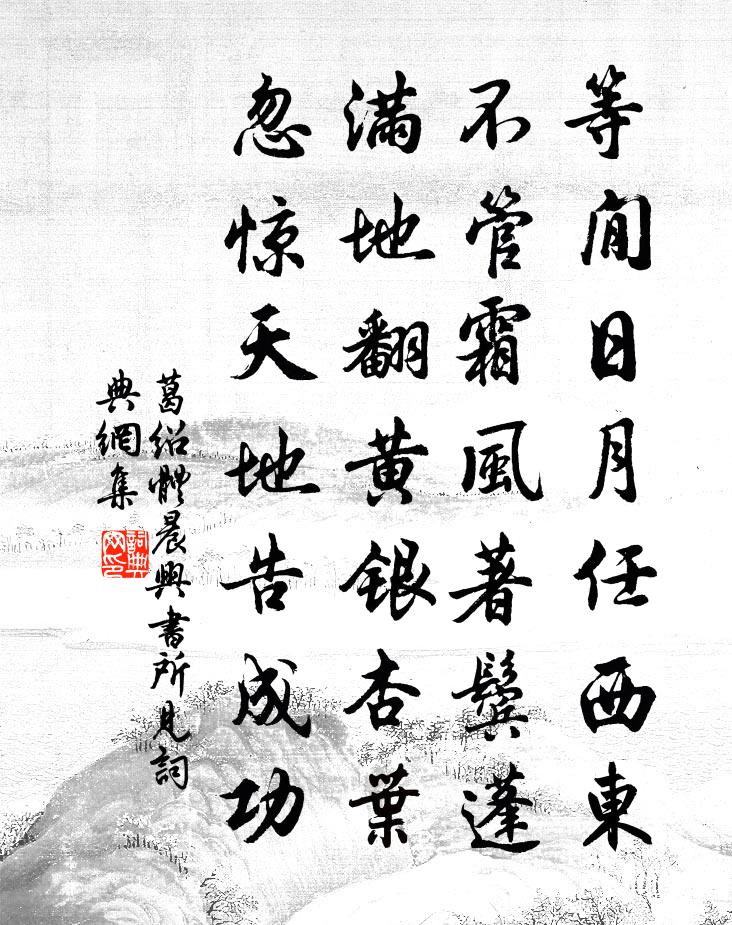 等閒日月任西東
不管霜風著鬢蓬
滿地翻黃銀杏葉
忽惊天地告成功
葛紹體晨興書所見詞
典網集
詞典
网印